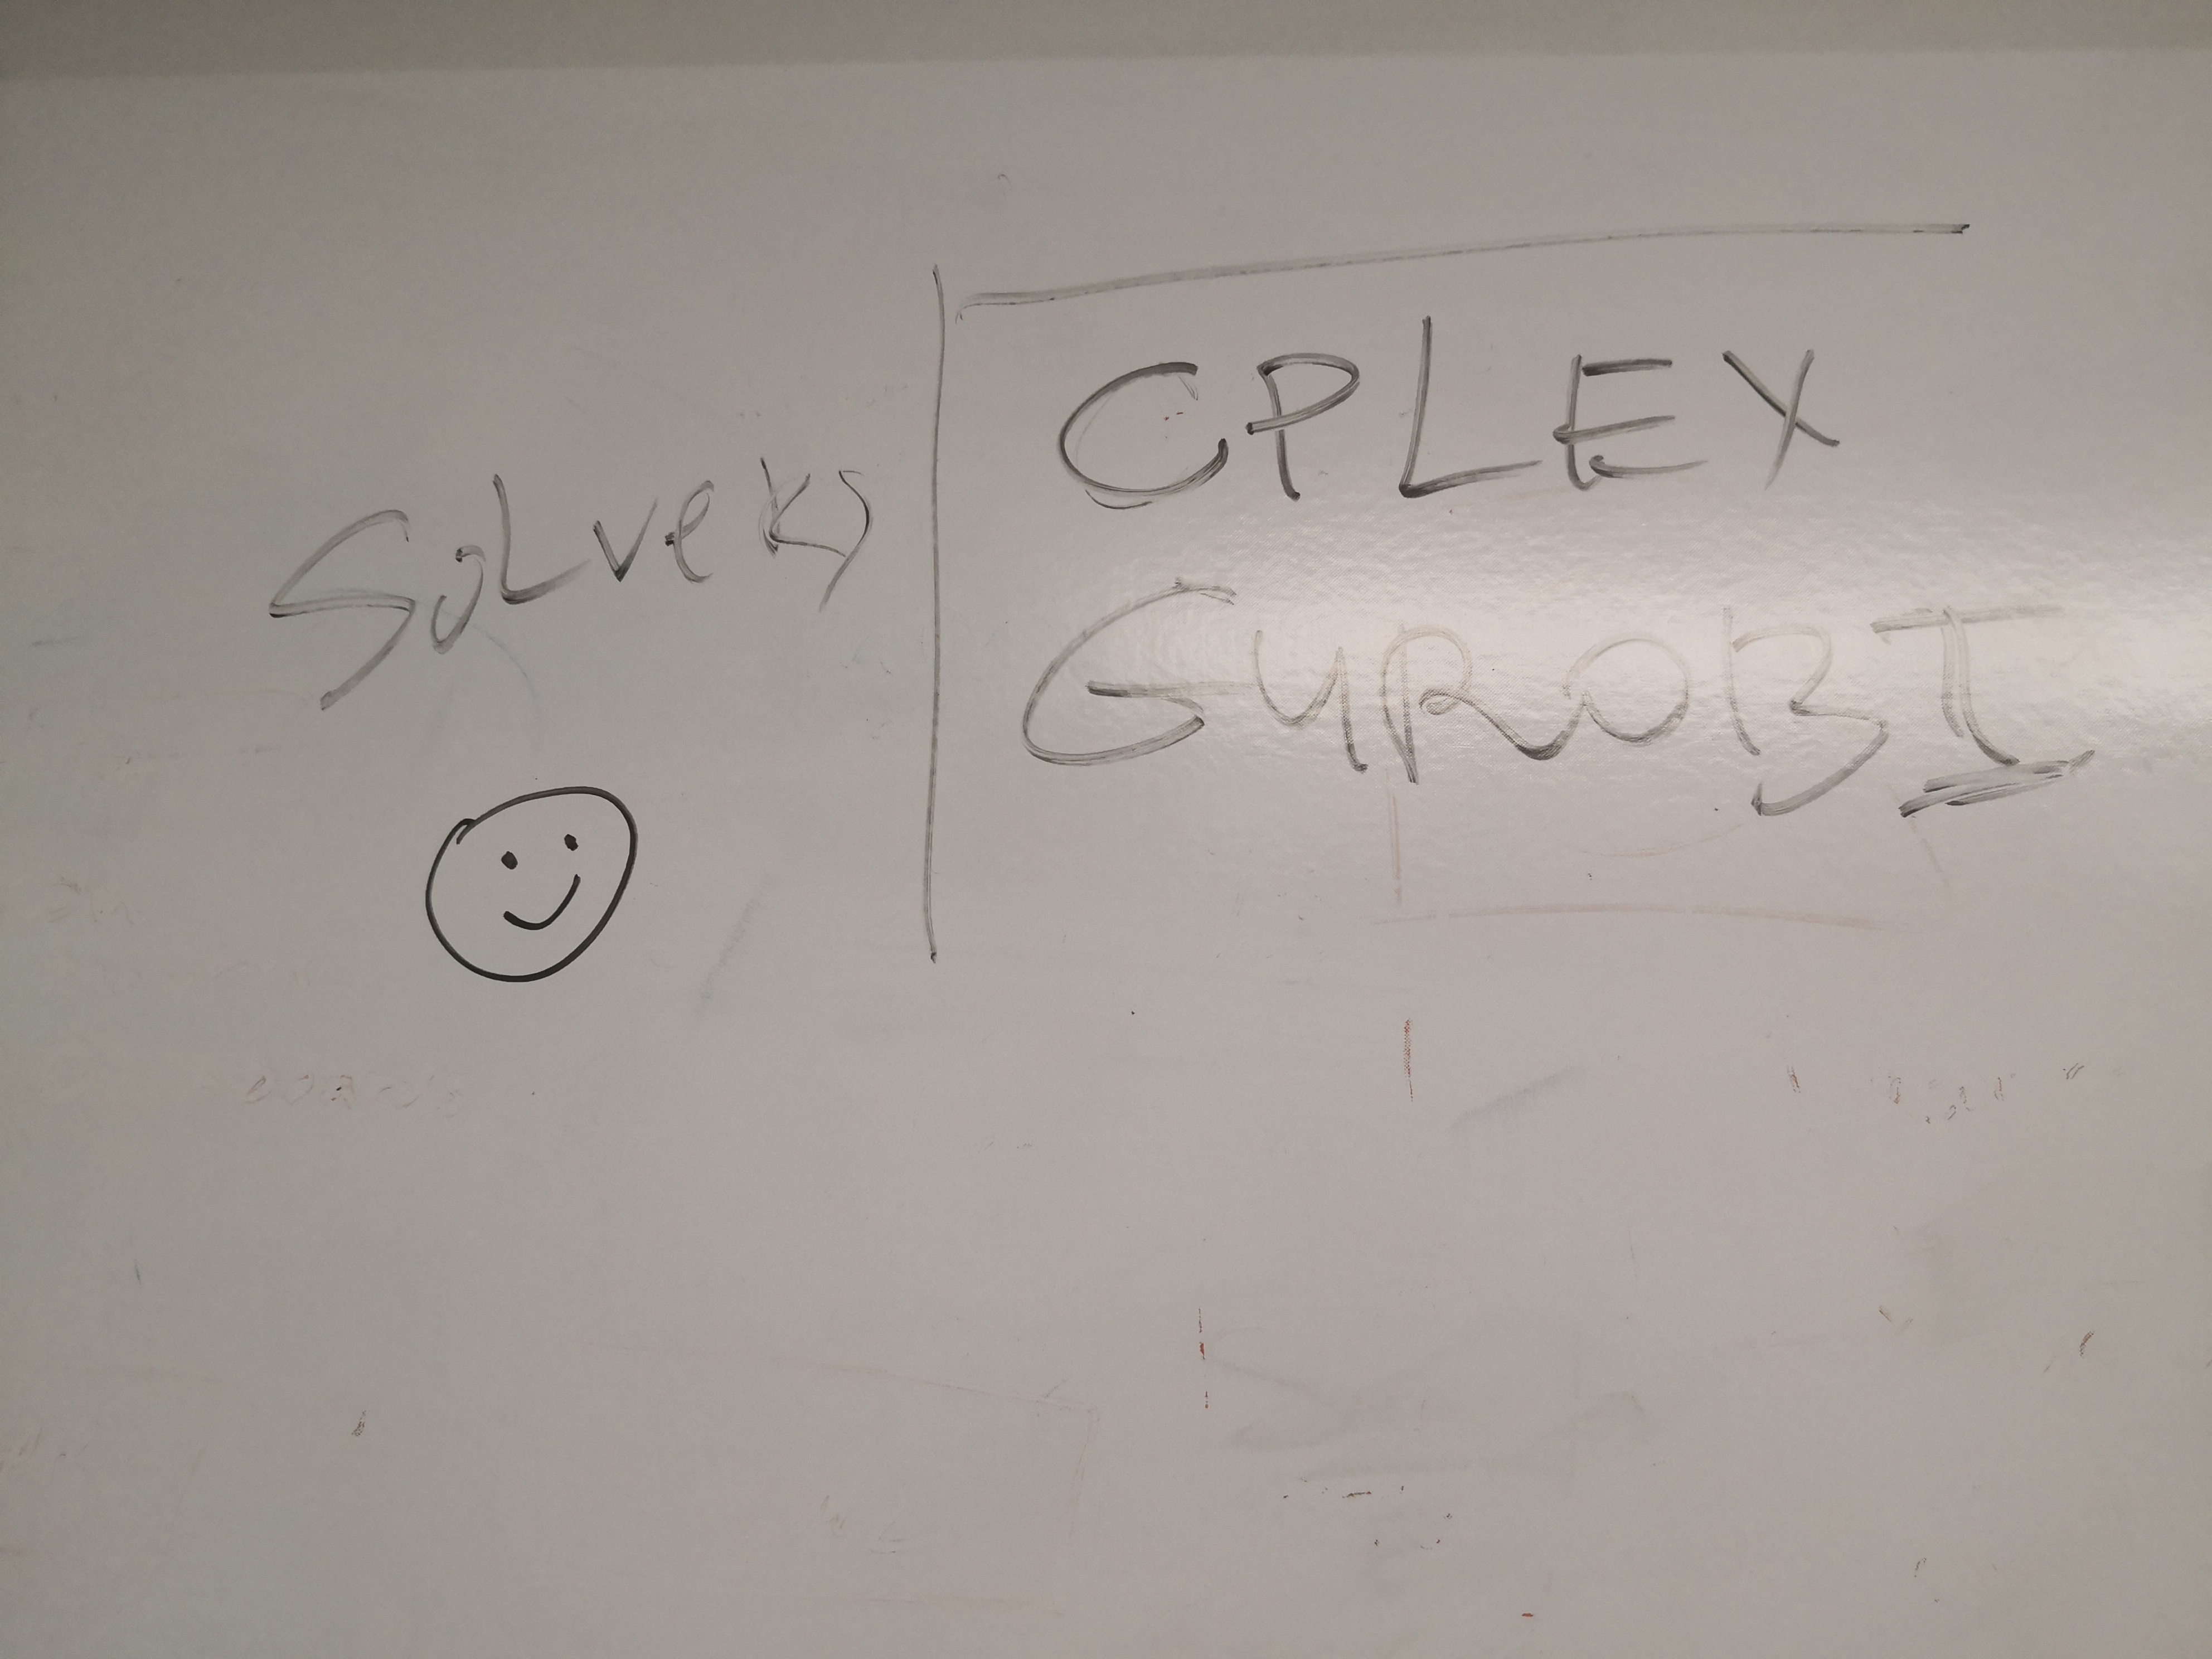 Solvers
CPLEX
GUROBI